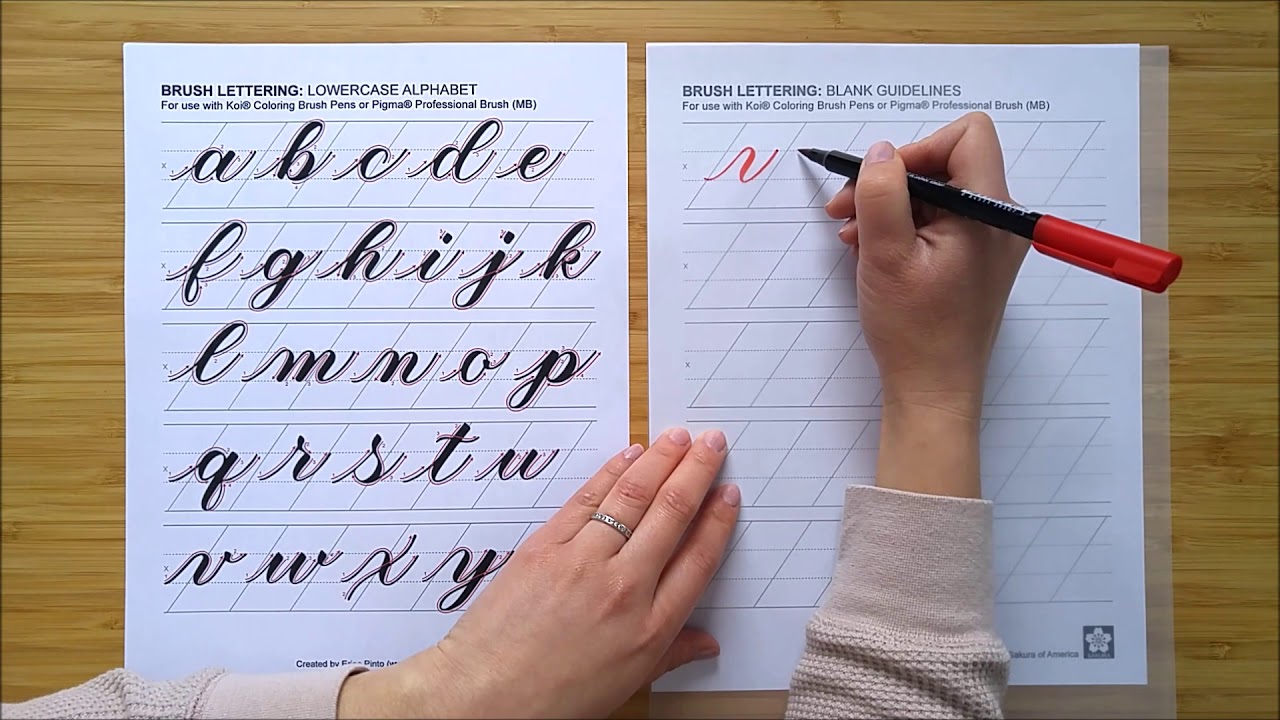 BRUSH LETTERING: LOWERCASE ALPHABET
For use with Koi® Coloring Brush Pens or Pigma® Professional Brush (MB)
a b c d e
x
f g h i j k
x
l m n o p
x
q r s t u
x
v w x y
x
Created by Erica Pinto
BRUSH LETTERING: BLANK GUIDELINES
For use with Koi® Coloring Brush Pens or Pigma® Professional Brush (MB)
x
x
x
Sakura of America
SAKURA